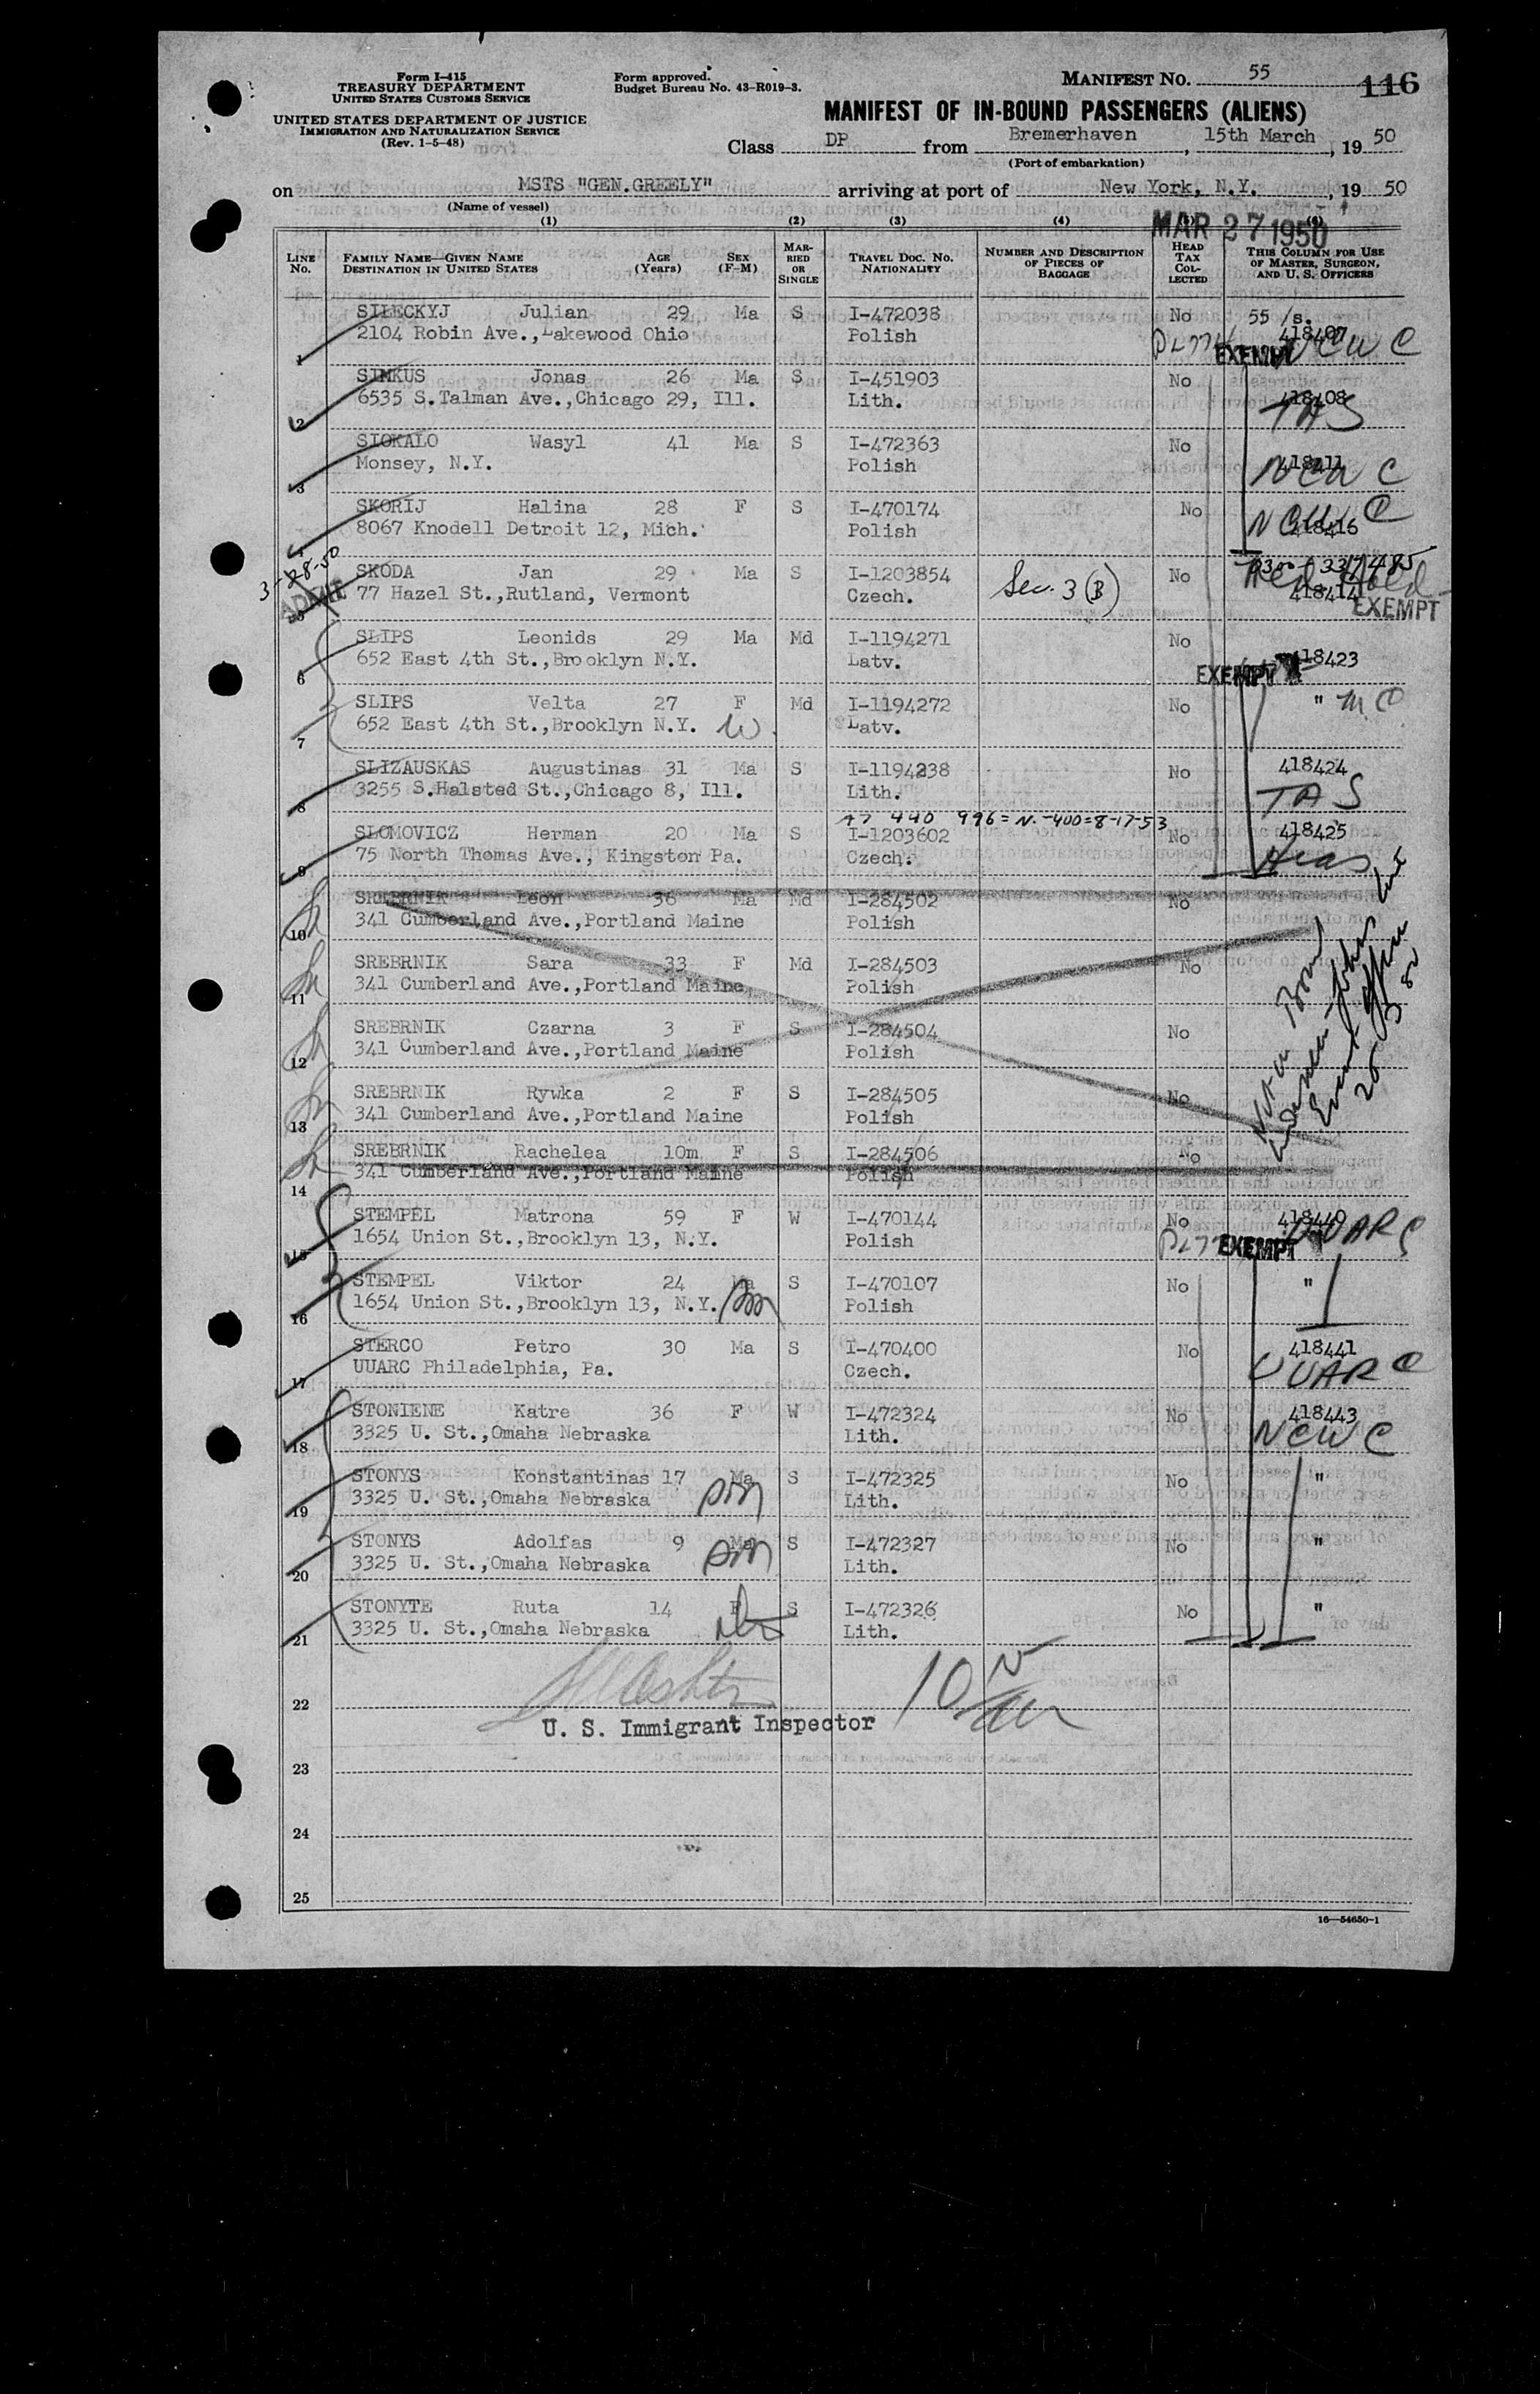 Form I-415
TREASURY DEPARTMENT
UNITED STATES CUSTOMS SERVICE
UNITED STATES DEPARTMENT OF JUSTICE
IMMIGRATION AND NATURALIZATION SERVICE
(Rev. 1-5-48)
Form approved.
Budget Bureau No. 43-R019-3.
MANIFEST NO. 55
116
MANIFEST OF IN-BOUND PASSENGERS (ALIENS)
Class DP from Bremerhaven, 15th March, 19 50
(Port of embarkation)
on MSTS "GEN.GREELY" arriving at port of New York, N.Y., 19 50
(Name of vessel)
MAR 27 1950
(1) (2) (3) (4) (5) (6)
LINE NO.
FAMILY NAME—GIVEN NAME
DESTINATION IN UNITED STATES
AGE (Years)
SEX (F-M)
MARRIED OR SINGLE
TRAVEL DOC. NO.
NATIONALITY
NUMBER AND DESCRIPTION OF PIECES OF BAGGAGE
HEAD TAX COLLECTED
THIS COLUMN FOR USE OF MASTER, SURGEON, AND U. S. OFFICERS
SILECKYJ Julian 29 Ma S I-472038 No 55 /s.
1 2104 Robin Ave.,Lakewood Ohio Polish 418407 EXEMPT NCWC
SIMKUS Jonas 26 Ma S I-451903 No
2 6535 S.Talman Ave.,Chicago 29, Ill. Lith. 418408 TAS
SIOKALO Wasyl 41 Ma S I-472363 No
3 Monsey, N.Y. Polish 418411 NCWC
SKORIJ Halina 28 F S I-470174 No
4 8067 Knodell Detroit 12, Mich. Polish 418416 NCWC
3-28-50 ADMIT
SKODA Jan 29 Ma S I-1203854 Sec. 3 (B) No
5 77 Hazel St.,Rutland, Vermont Czech. 418414 EXEMPT
SLIPS Leonids 29 Ma Md I-1194271 No
6 652 East 4th St.,Brooklyn N.Y. Latv. 418423 EXEMPT
SLIPS Velta 27 F Md I-1194272 No "
7 652 East 4th St.,Brooklyn N.Y. W Latv.
SLIZAUSKAS Augustinas 31 Ma S I-1194238 No 418424
8 3255 S.Halsted St.,Chicago 8, Ill. Lith. TAS
A7 440 996 = N.-400=8-17-53
SLOMOVICZ Herman 20 Ma S I-1203602 No 418425
9 75 North Thomas Ave., Kingston Pa. Czech. Hias
SREBRNIK Leon 36 Ma Md I-284502 No
10 341 Cumberland Ave.,Portland Maine Polish
SREBRNIK Sara 33 F Md I-284503 No
11 341 Cumberland Ave.,Portland Maine Polish
SREBRNIK Czarna 3 F S I-284504 No
12 341 Cumberland Ave.,Portland Maine Polish
SREBRNIK Rywka 2 F S I-284505 No
13 341 Cumberland Ave.,Portland Maine Polish
SREBRNIK Rachelea 10m F S I-284506 No
14 341 Cumberland Ave.,Portland Maine Polish
STEMPEL Matrona 59 F W I-470144 No 418440
15 1654 Union St.,Brooklyn 13, N.Y. Polish EXEMPT UUARC
STEMPEL Viktor 24 Ma S I-470107 No "
16 1654 Union St.,Brooklyn 13, N.Y. Polish
STERCO Petro 30 Ma S I-470400 No 418441
17 UUARC Philadelphia, Pa. Czech. UUARC
STONIENE Katre 36 F W I-472324 No 418443
18 3325 U. St.,Omaha Nebraska Lith. NCWC
STONYS Konstantinas 17 Ma S I-472325 No "
19 3325 U. St.,Omaha Nebraska Lith.
STONYS Adolfas 9 Ma S I-472327 No "
20 3325 U. St.,Omaha Nebraska Lith.
STONYTE Ruta 14 F S I-472326 No "
21 3325 U. St.,Omaha Nebraska Lith.
22
U. S. Immigrant Inspector
23
24
25
16—54650-1